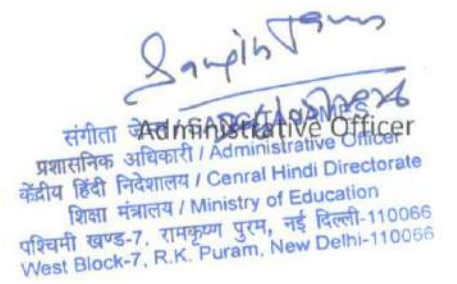 संगीता
Administrative Officer
प्रशासनिक अधिकारी / Administrative Officer
केंद्रीय हिंदी निदेशालय / Cenral Hindi Directorate
शिक्षा मंत्रालय / Ministry of Education
पश्चिमी खण्ड-7, रामकृष्ण पुरम, नई दिल्ली-110066
West Block-7, R.K. Puram, New Delhi-110066